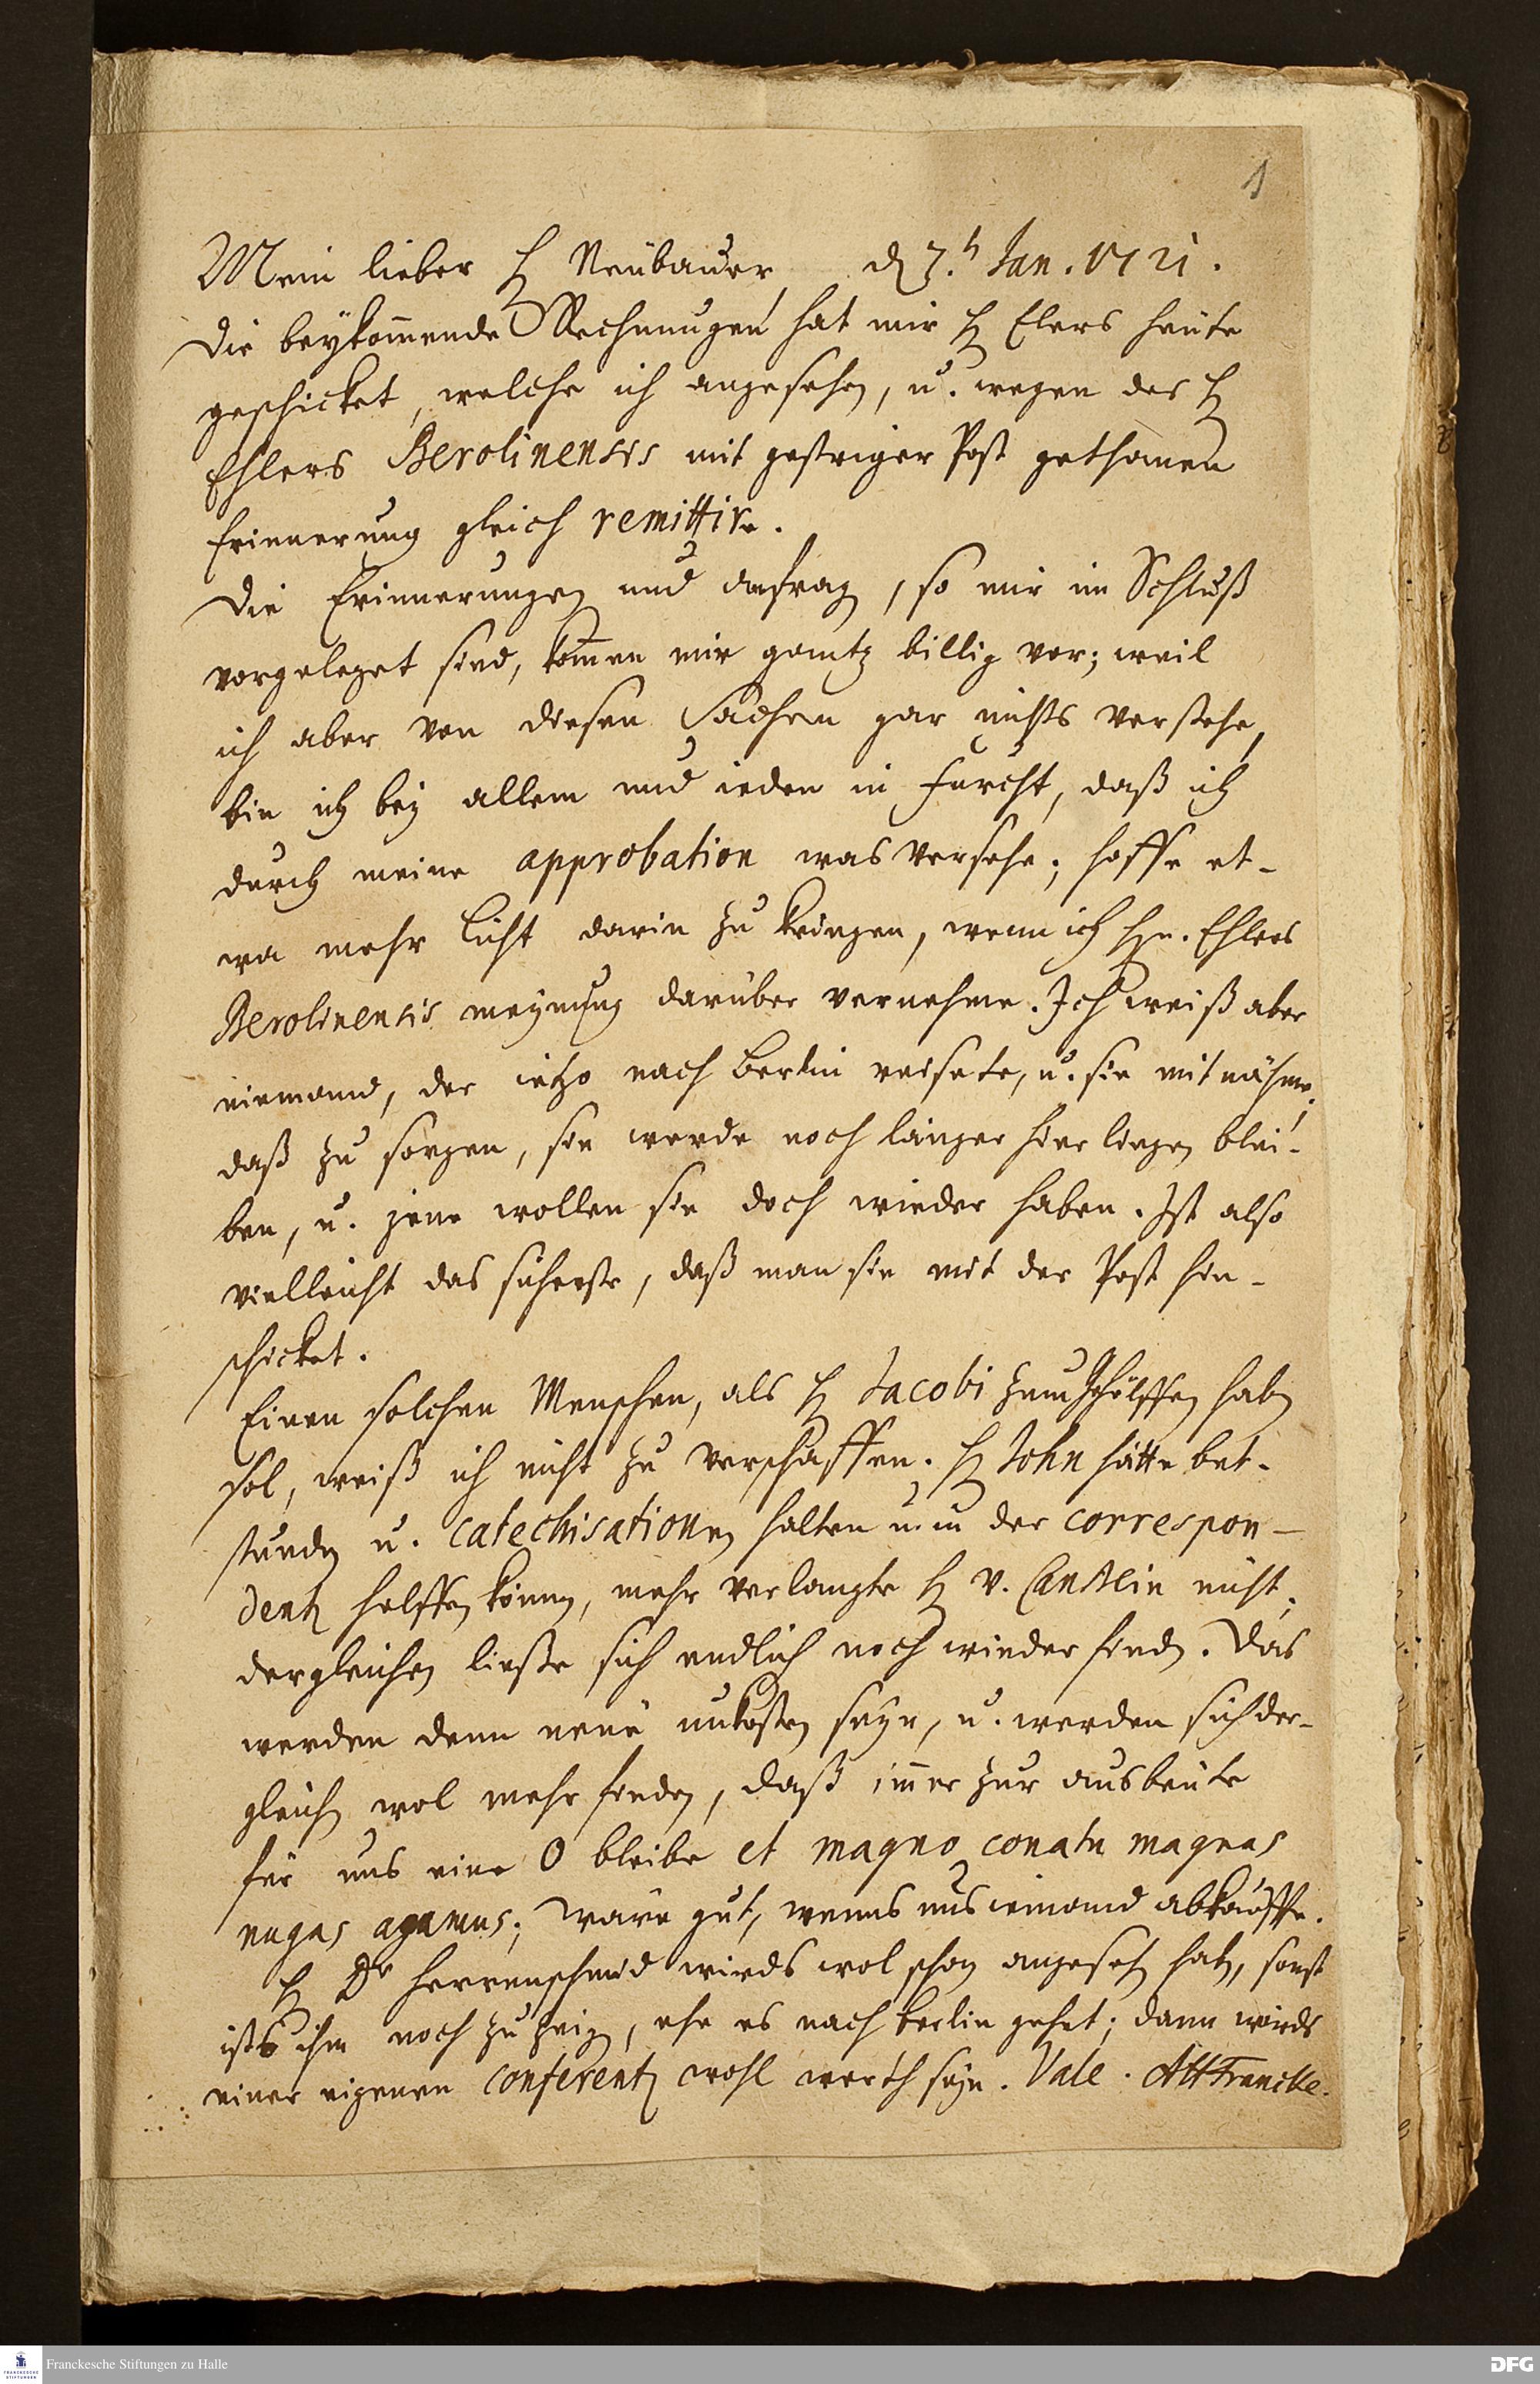 1
Mein lieber H Neubauer, d 7.h Jan. 1721.
Die beykom̄ende Rechnungen hat mir H Elers heute
geschicket, welche ich angesehen, u. wegen der H
Ehlers Berolinensis mit gestriger Post gethanen
Erinnerung gleich remittire.
Die Erinnerungen und anfrag, so mir im Schluß
vorgeleget sind, kom̄en mir gantz billig vor; weil
ich aber von diesen Sachen gar nichts verstehe,
bin ich bey allem und ieden in furcht, daß ich
durch meine approbation was versehe; hoffe et-
wa mehr licht darin zu kriegen, wenn ich Hn. Ehlers
Berolinensis meynung darüber vernehme. Ich weiß aber
niemand, der ietzo nach Berlin reisete, u. sie mitnähme;
daß zu sorgen, sie werde noch länger hier liegen blei-
ben, u. jene wollen sie doch wieder haben. Ist also
vielleicht das sicherste, daß man sie mit der Post hin-
schicket.
Einen solchen Menschen, als H Jacobi zum Gehülffen haben
sol, weiß ich nicht zu verschaffen. H John hätte bet-
stunden u. catechisationen halten u. in der correspon-
dentz helffen können, mehr verlangte H v. Canstein nicht;
dergleichen ließe sich endlich noch wieder finden. Das
werden denn neue unkosten seyn, u. werden sich der-
gleichen wol mehr finden, daß im̄er zur ausbeute
für uns eine 0 bleibe et magno conatu magnas
nugas agamus; wäre gut, wenns uns iemand abkauffte.
H Dr Herrnschmid wirds wol schon angesehen haben, sonst
ists ihm noch zu zeigen, ehe es nach Berlin gehet; dann wirds
einer eigenen conferentz wohl werth seyn. Vale. AHFrancke.
Franckesche Stiftungen zu Halle
FRANCKESCHE STIFTUNGEN
DFG